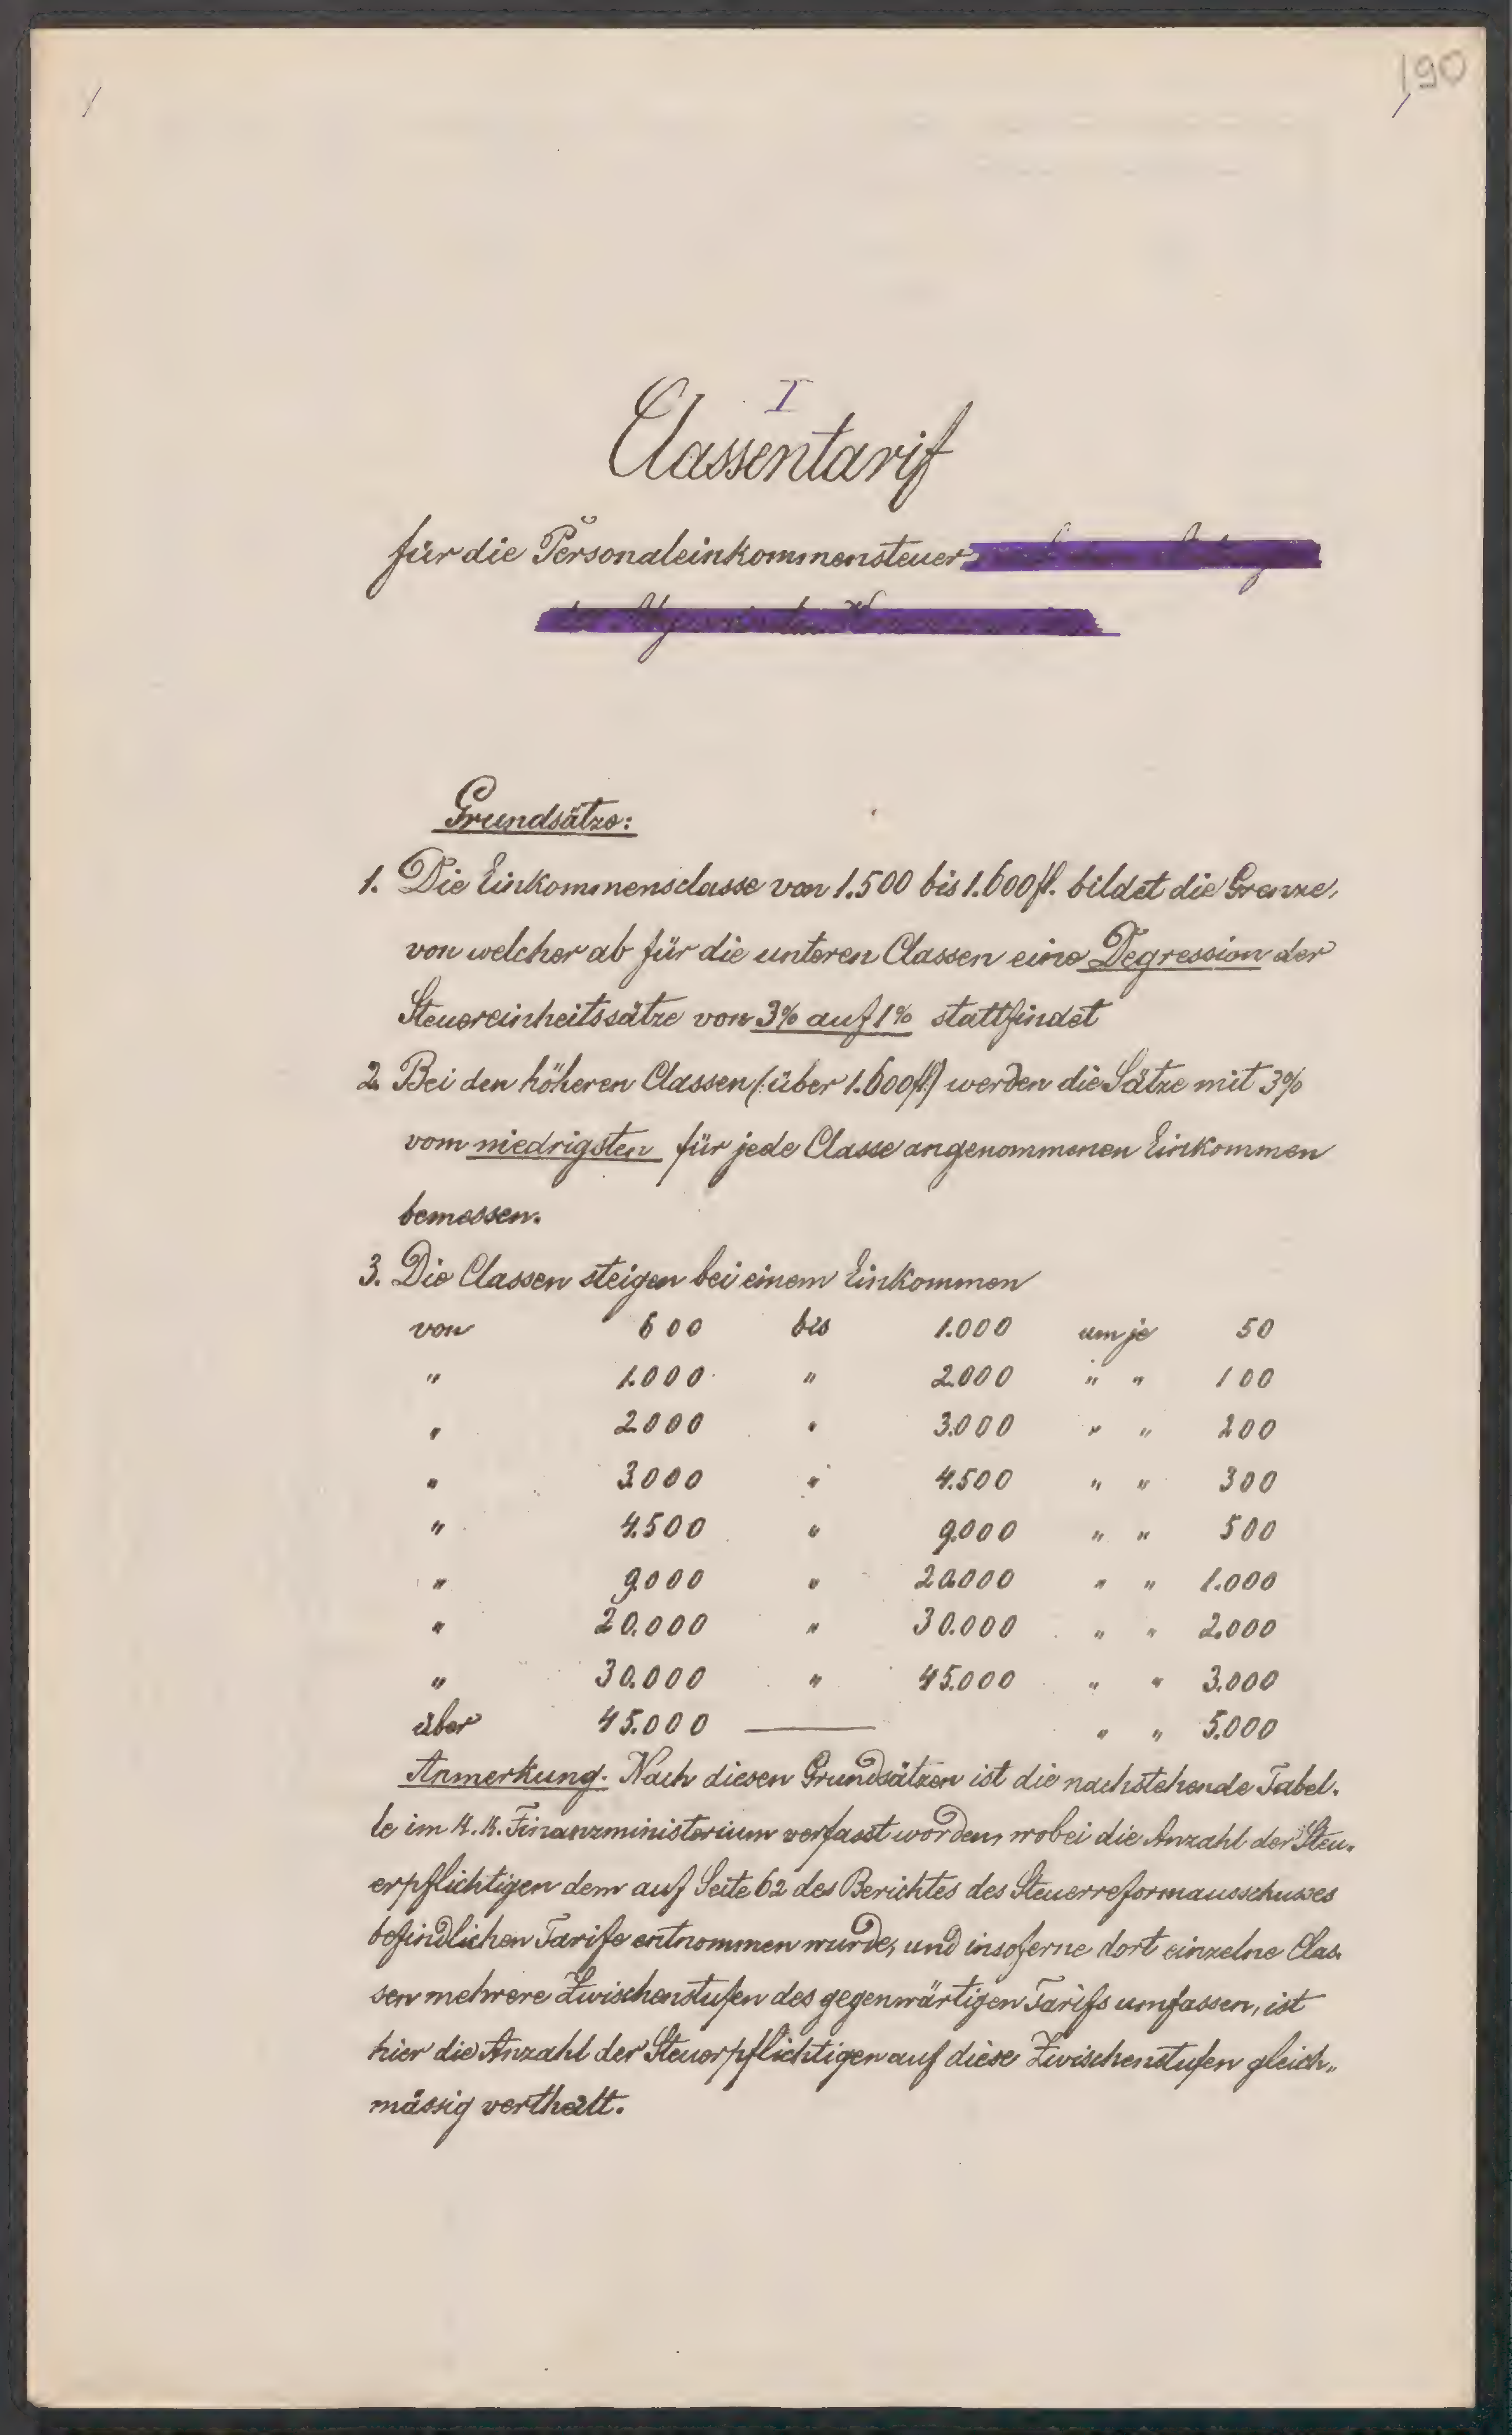 190
I
Classentarif
für die Personaleinkommensteuer
Grundsätze:
1. Die Einkommensclasse von 1.500 bis 1.600 fl. bildet die Grenze,
von welcher ab für die unteren Classen eine Degression der
Steuereinheitssätze von 3% auf 1% stattfindet
2. Bei den höheren Classen (: über 1.600 fl) werden die Sätze mit 3%
vom niedrigsten für jede Classe angenommenen Einkommen
bemessen.
3. Die Classen steigen bei einem Einkommen
von 600 bis 1.000 um je 50
" 1.000 " 2.000 " " 100
" 2.000 " 3.000 " " 200
" 3.000 " 4.500 " " 300
" 4.500 " 9.000 " " 500
" 9.000 " 20.000 " " 1.000
" 20.000 " 30.000 " " 2.000
" 30.000 " 45.000 " " 3.000
über 45.000 — " " 5.000
Anmerkung. Nach diesen Grundsätzen ist die nachstehende Tabel-
le im k.k. Finanzministerium verfasst worden, wobei die Anzahl der Steu-
erpflichtigen dem auf Seite 62 des Berichtes des Steuerreformausschusses
befindlichen Tarife entnommen wurde, und insoferne dort einzelne Clas-
sen mehrere Zwischenstufen des gegenwärtigen Tarifs umfassen, ist
hier die Anzahl der Steuerpflichtigen auf diese Zwischenstufen gleich-
mässig vertheilt.